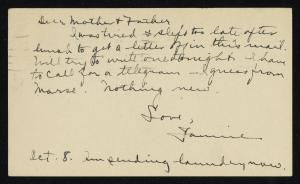 Dear Mother & Father
I was tired & slept too late after
lunch to get a letter off in this mail.
Will try to write one tonight. I have
to call for a telegram — I guess from
Marse. Nothing new.
Love,
Fannie
Oct. 8. Am sending laundry now.